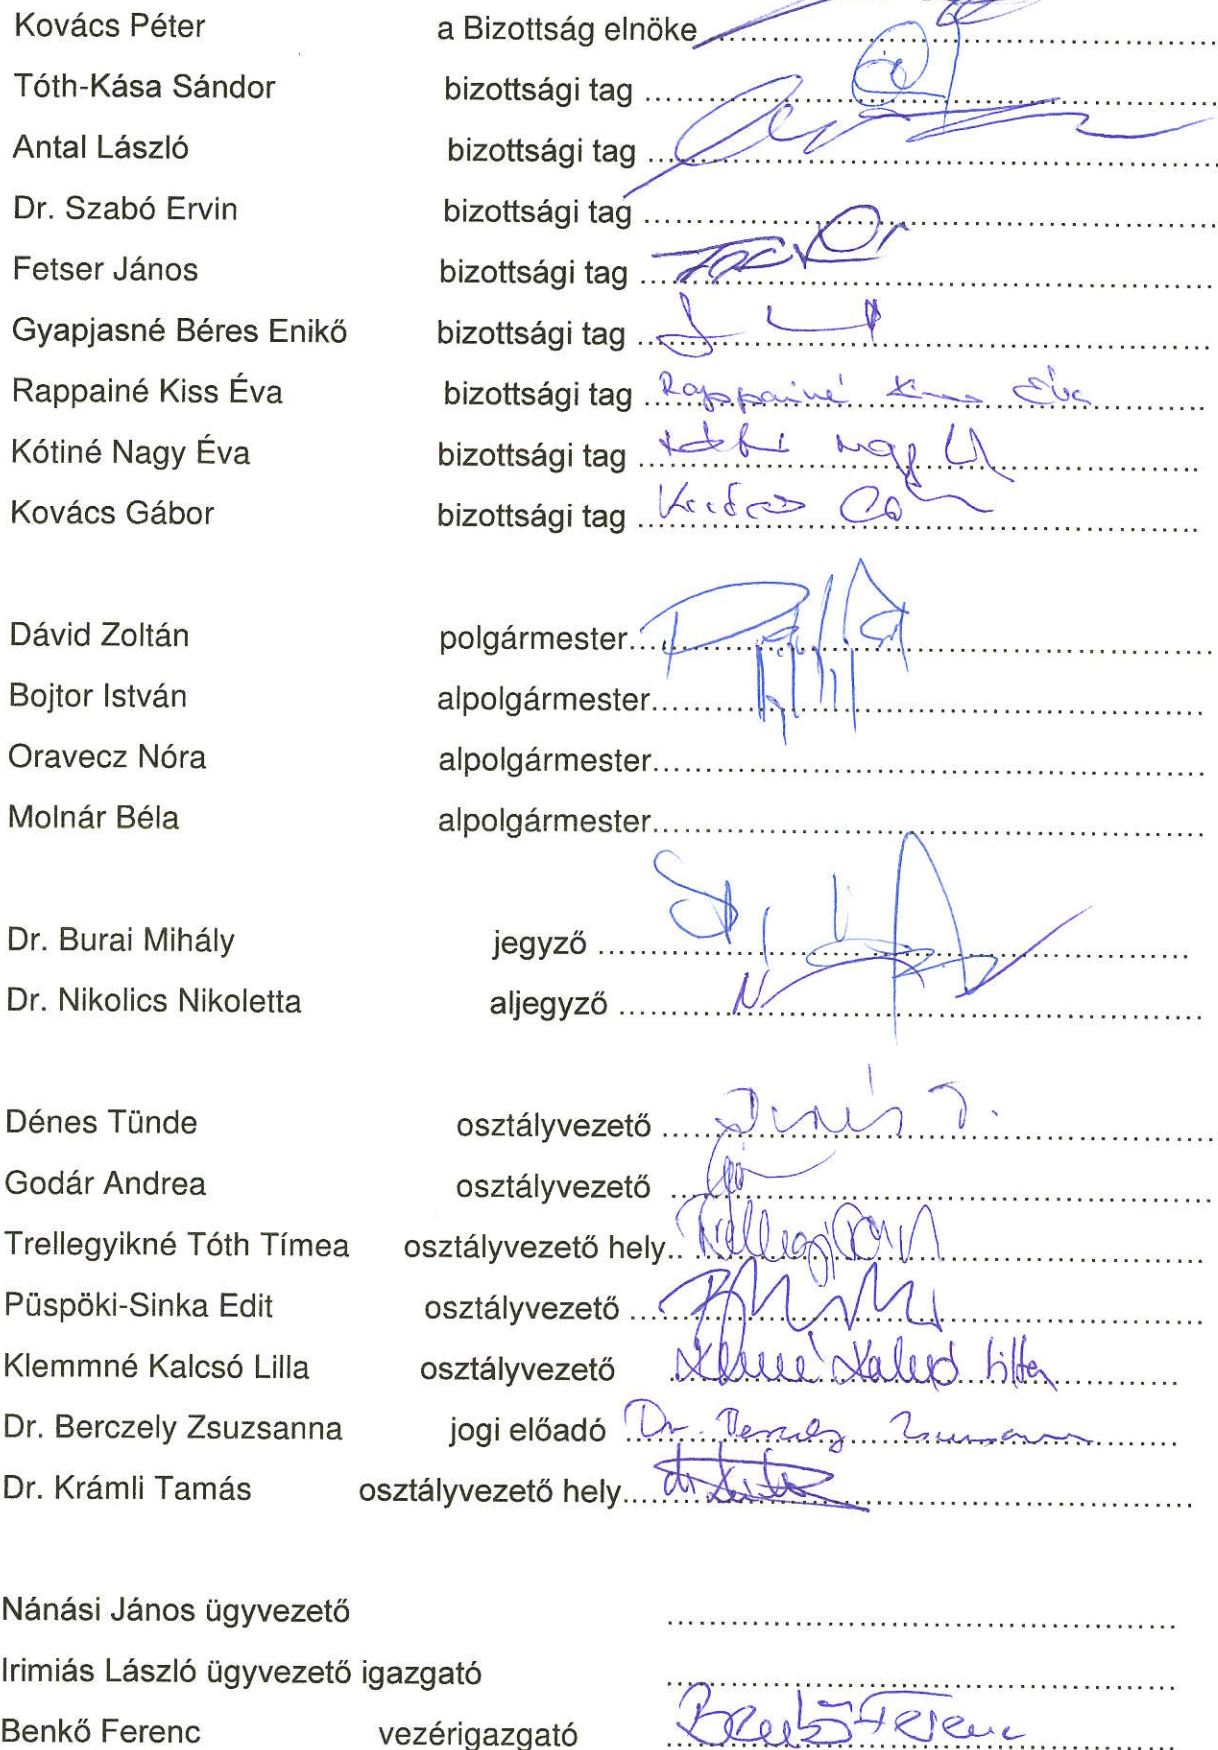 Kovács Péter a Bizottság elnöke
Tóth-Kása Sándor bizottsági tag
Antal László bizottsági tag
Dr. Szabó Ervin bizottsági tag
Fetser János bizottsági tag
Gyapjasné Béres Enikő bizottsági tag
Rappainé Kiss Éva bizottsági tag Rappainé Kiss Éva
Kótiné Nagy Éva bizottsági tag
Kovács Gábor bizottsági tag Kovács
Dávid Zoltán polgármester
Bojtor István alpolgármester
Oravecz Nóra alpolgármester
Molnár Béla alpolgármester
Dr. Burai Mihály jegyző
Dr. Nikolics Nikoletta aljegyző
Dénes Tünde osztályvezető Dénes T.
Godár Andrea osztályvezető
Trellegyikné Tóth Tímea osztályvezető hely..
Püspöki-Sinka Edit osztályvezető
Klemmné Kalcsó Lilla osztályvezető Klemmné Kalcsó Lilla
Dr. Berczely Zsuzsanna jogi előadó Dr. Berczely Zsuzsanna
Dr. Krámli Tamás osztályvezető hely....
Nánási János ügyvezető
Irimiás László ügyvezető igazgató
Benkő Ferenc vezérigazgató Benkő Ferenc